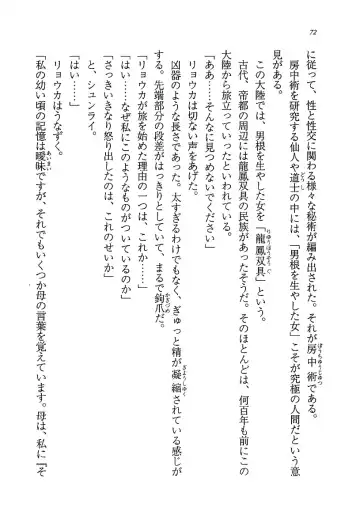 72
に従って、性と性交に関わる様々な秘術が編み出された。それが房中術である。
房中術を研究する仙人や道士の中には、「男根を生やした女」こそが究極の人間だという意
見がある。
この大陸では、男根を生やした女を「龍鳳双具」という。
古代、帝都の周辺には龍鳳双具の民族があったそうだ。そのほとんどは、何百年も前に
大陸から旅立っていったといわれている。
「ああ……そんなに見つめないでください」
リョウカは切ない声をあげた。
凶器のような長さであった。太すぎるわけでもなく、ぎゅっと精が凝縮されている感じが
する。先端部分の段差がはっきりとしていて、まるで鉤爪だ。
「リョウカが旅を始めた理由の一つは、これか……」
「はい……なぜ私にこのようなものがついているのか」
「さっきいきなり怒り出したのは、これのせいか」
と、シュンライ。
「はい……」
リョウカはうなずく。
「私の幼い頃の記憶は曖昧ですが、それでもいくつか母の言葉を覚えています。母は、私に『そ